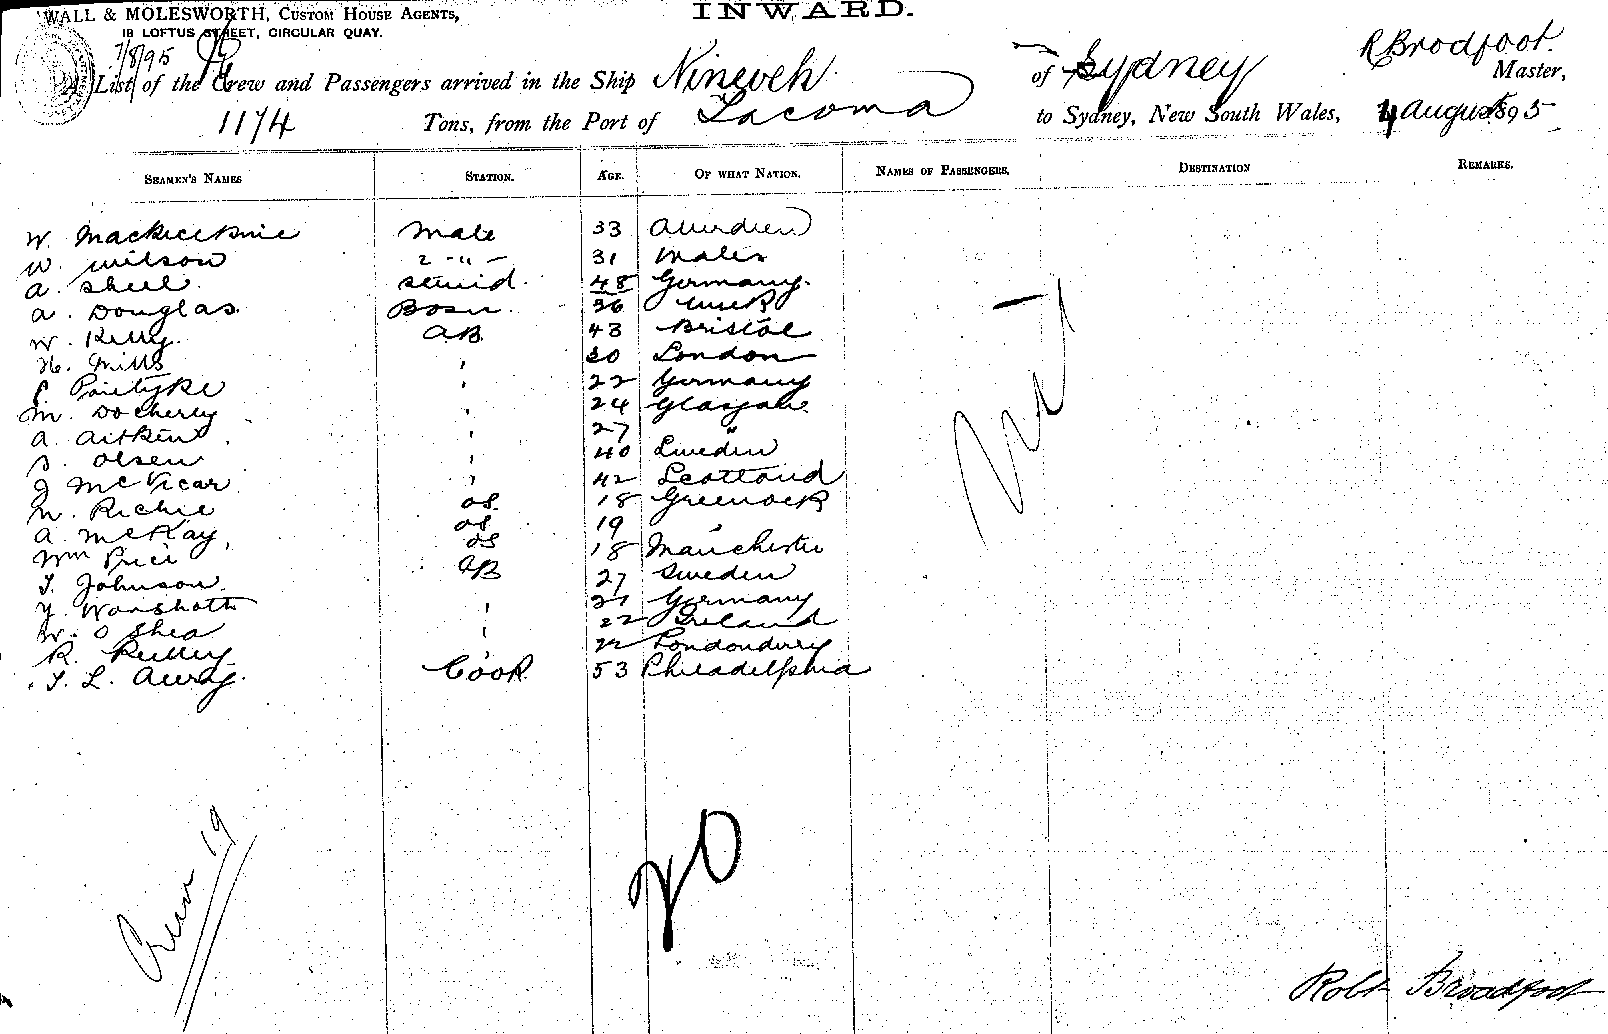 WALL & MOLESWORTH, CUSTOM HOUSE AGENTS,
18 LOFTUS STREET, CIRCULAR QUAY.
INWARD.
7/8/95
R Brodfoot.
A List of the Crew and Passengers arrived in the Ship Nineveh of Sydney Master,
1174 Tons, from the Port of Tacoma to Sydney, New South Wales, 4 August 1895
SEAMEN'S NAMES STATION. AGE. OF WHAT NATION. NAMES OF PASSENGERS. DESTINATION REMARKS.
W. Mate 33 Aberdeen
W. Wilson 2 - " - 31 Wales
A. Sheel. 48 Germany.
A. Douglas. Bosn. 36
W. Kelly. AB. 43 Bristol
H. Mills ' 20 London
P. ' 22 Germany
M. Docherty ' 24 Glasgow
A. Aitken ' 27 "
S. Olsen ' 40 Sweden
J McVicar ' 42 Scotland
N. Richie OS. 18 Greenock
A. McKay, OS 19 '
Wm Price OS 18 Manchester
T. Johnson. AB 27 Sweden
Y. ' 21 Germany
W. O Shea ' 22 Ireland
R. Reilly ' 22 Londonderry
T. L. Cook. 53 Philadelphia
Nil
Crew 19
20
Robt Broadfoot